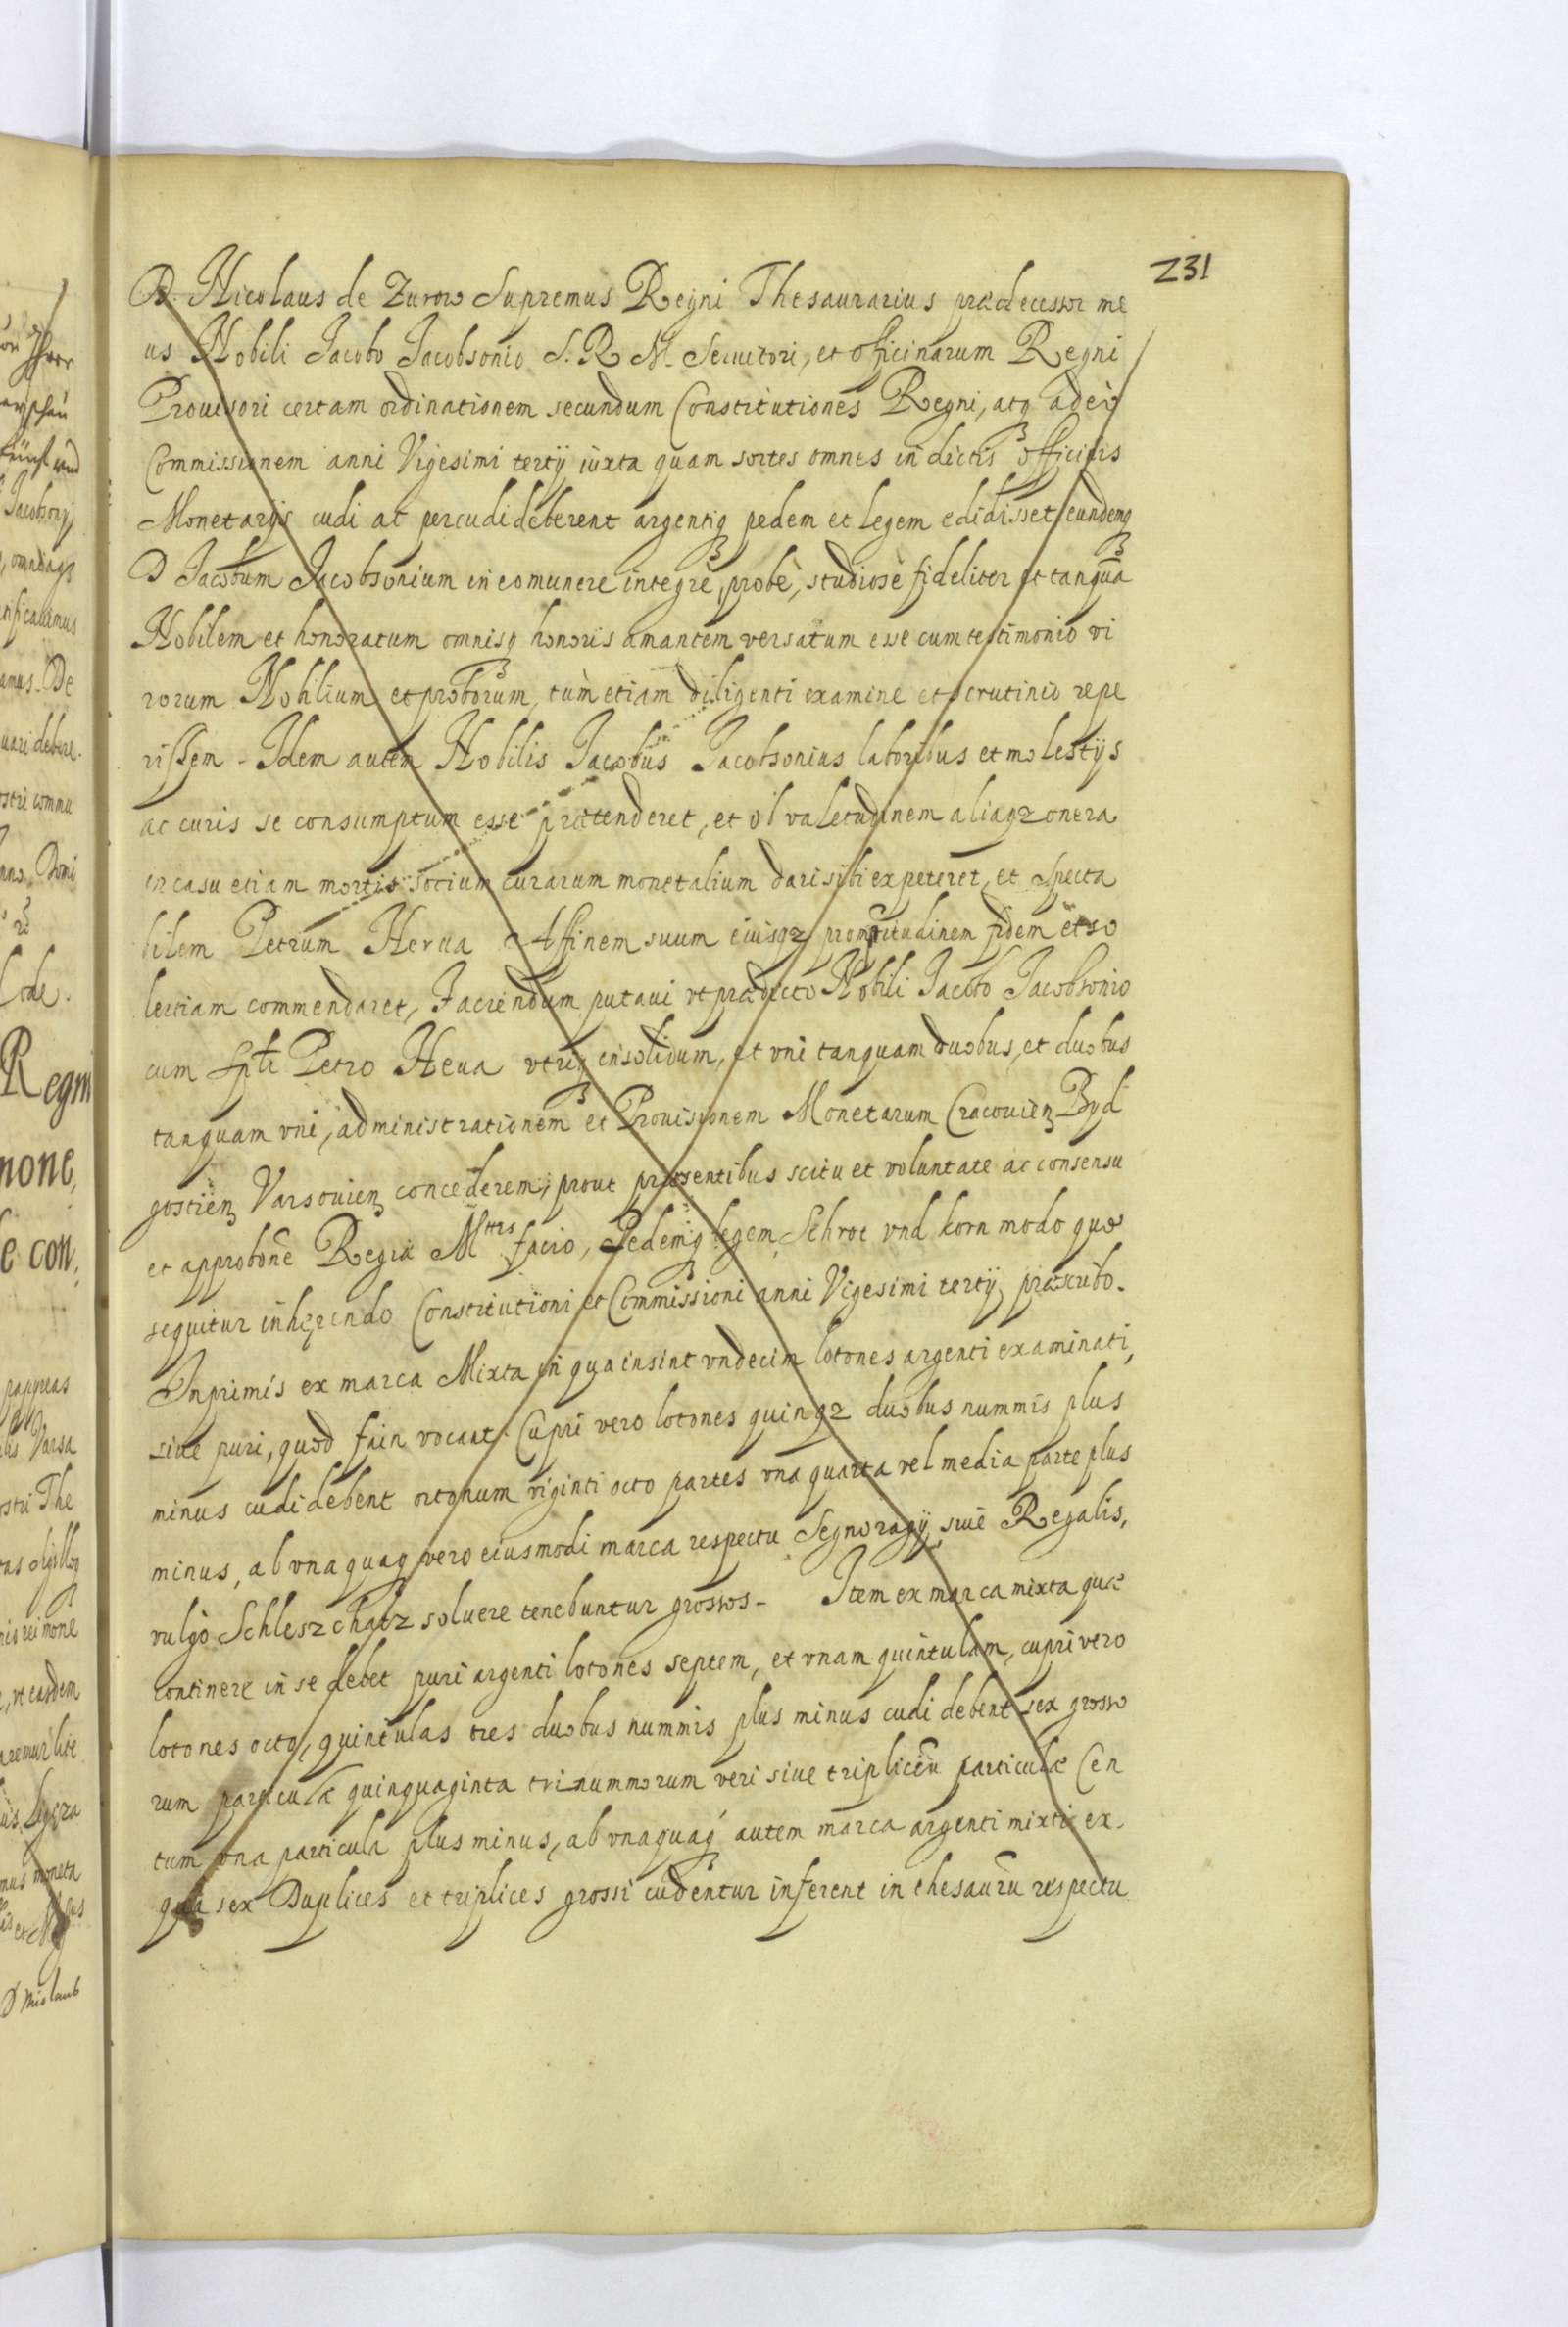 231
D. Nicolaus de Zurow Supremus Regni Thesaurarius prædecessor me
us Nobili Jacobo Jacobsonio S. R. M. Seruitori, et officinarum Regni
Prouisori certam ordinationem secundum Constitutiones Regni, atq adeò
Commissionem anni Vigesimi tertÿ iuxta quam sortes omnes in dictis officinis
Monetarÿs cudi ac percudi deberent argentiq pedem et legem edidisset eundemq
D Jacobum Jacobsonium in eo munere integrè, probè, studiosè fideliter et tanquã
Nobilem et honoratum omnisq honoris amantem versatum esse cum testimonio vi
rorum Nobilium et proborum, tùm etiam diligenti examine et scrutinio repe
rissem - Idem autem Nobilis Jacobus Jacobsonius laboribus et molestÿs
ac curis se consumptum esse prætenderet, et ob valetudinem aliaqz onera
in casu etiam mortis socium curarum monetalium dari sibi expeteret, et specta
bilem Petrum Herua Affinem suum eiusqz promptitudinem fidem et so
lertiam commendaret, Faciendum putaui vt prædicto Nobili Jacobo Jacobsonio
cum Spti Petro Heua vtriq insolidum, et vni tanquam duobus, et duobus
tanquam vni, administrationem et Prouisionem Monetarum Cracouien Byd
gostien Varsouien concederem, prout præsentibus scitu et voluntate ac consensu
et approbone Regiæ Mttis facio, Pedemq legem, Schrot vnd korn modo quo
sequitur inhęrendo Constitutioni et Commissioni anni Vigesimi tertÿ præscribo.
Inprimis ex marca Mixta in qua insint vndecim lotones argenti examinati,
siue puri, quod fain vocant. Cupri vero lotones quinqz duobus nummis plus
minus cudi debent ortonum viginti octo partes vna quarta vel media parte plus
minus, ab vnaquaq vero eiusmodi marca respectu Segnoragÿ siue Regalis,
vulgò Schleszchatz soluere tenebuntur grossos - Item ex marca mixta quæ
continere in se debet puri argenti lotones septem, et vnam quintulam, cupri vero
lotones octo, quintulas tres duobus nummis plus minus cudi debent sex grosso
rum particulæ quinquaginta trinummorum veri siue triplicẽu particulæ Cen
tum vna particula plus minus, ab vnaquaq autem marca argenti mixti ex
qua sex Duplices et triplices grossi cudentur inferent in thesaurũ respectu